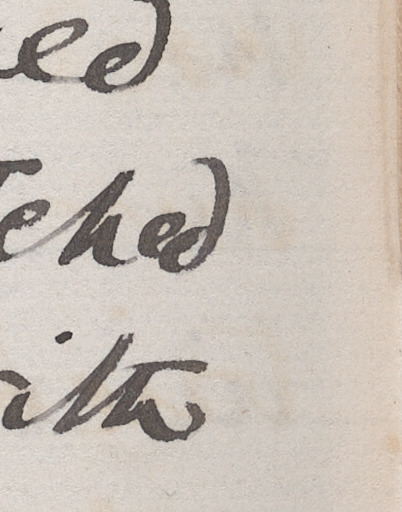 ed
ched
ith